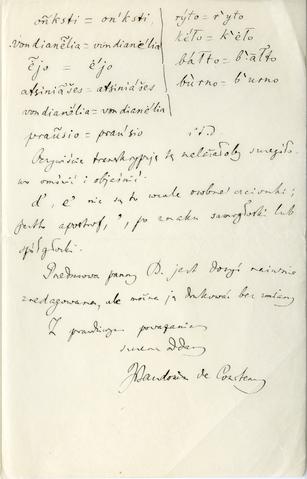 oñksti = on'ksti
vondianẽlia = vondian'élia
ẽjo = e'jo
atsiniãšes = atsinia'šes
vondianẽlia = vondian'élia
praũsio = prau'sio
rýto = r'yto
kéło = k'eło
báłto = b'ałto
bùrno = b'urno
i t. d.
Oczywiście transkrypcję tę należałoby szczegóło-
wo omówić i objaśnić.
a', e' nie są to wcale osobne czcionki;
jestto apostrof, ', po znaku samogłoski lub
spółgłoski.
Przedmowa panny D. jest dosyć naiwnie
zredagowana, ale można ją drukować bez zmiany
Z prawdziwym poważaniem
J. Baudouin de Courtenay